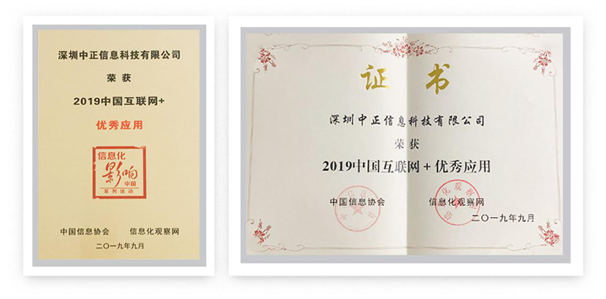 深圳中正信息科技有限公司
荣获
2019中国互联网+
优秀应用
信息化
影响
中国
系列活动
中国信息协会 信息化观察网
二〇一九年九月
证书
深圳中正信息科技有限公司
荣获
2019中国互联网+优秀应用
中国信息协会 信息化观察网
二〇一九年九月